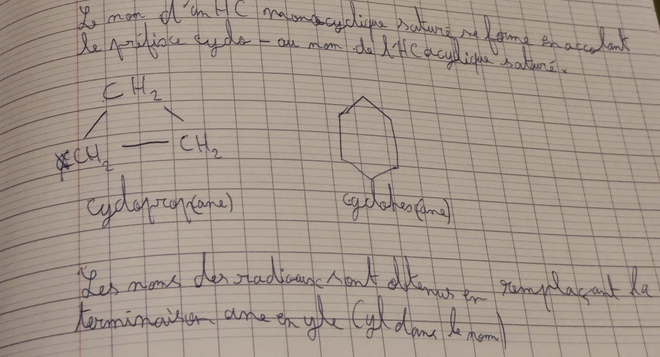 Le nom d'un HC monocyclique saturé se forme en accolant
le préfixe cyclo - au nom de l'HC acyclique saturé.
CH2
CH2 — CH2
cycloprop(ane) cyclohex(ane)
Les noms des radicaux sont obtenus en remplaçant la
terminaison ane en yle (yl dans le nom)